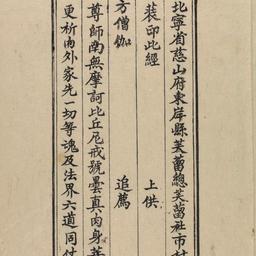 北寧省慈山府東岸縣芙蕾總芙蕾社市村
装印此經
上供
方僧伽
追薦
尊師南無摩訶比丘尼戒號曇真肉身菩
更祈內外家先一切等魂及法界六道同付